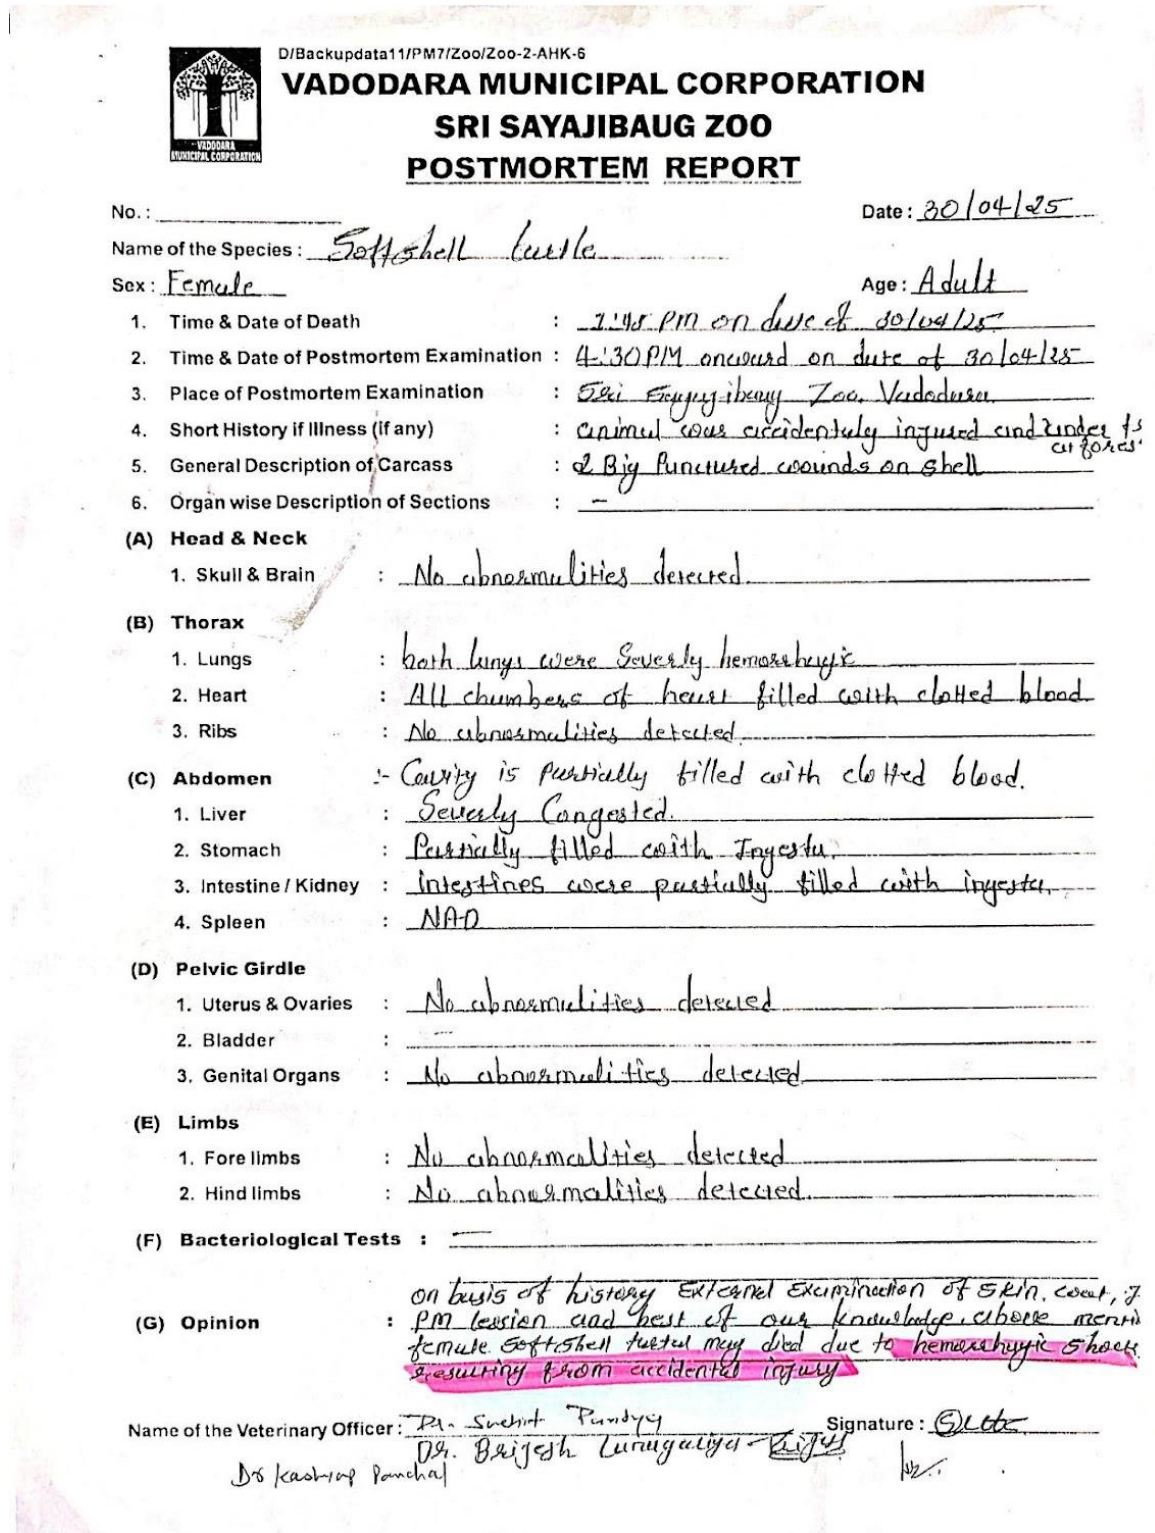 D/Backupdata11/PM7/Zoo/Zoo-2-AHK-6
VADODARA MUNICIPAL CORPORATION
SRI SAYAJIBAUG ZOO
POSTMORTEM REPORT
VADODARA
MUNICIPAL CORPORATION
No. :
Date : 30/04/25
Name of the Species : Softshell turtle
Sex : Female
Age : Adult
1. Time & Date of Death : 1:45 PM on date of 30/04/25
2. Time & Date of Postmortem Examination : 4:30 PM onward on date of 30/04/25
3. Place of Postmortem Examination : Sri Sayajibaug Zoo, Vadodara
4. Short History if Illness (if any) : animal was accidentaly injured and under
5. General Description of Carcass : 2 Big Punctured wounds on shell
6. Organ wise Description of Sections : -
(A) Head & Neck
1. Skull & Brain : No abnormalities detected
(B) Thorax
1. Lungs : both lungs were Severly hemorrhagic
2. Heart : All chambers of heart filled with clotted blood
3. Ribs : No abnormalities detected
(C) Abdomen :- Cavity is Partially filled with clotted blood.
1. Liver : Severly Congested.
2. Stomach : Partially filled with Ingesta.
3. Intestine / Kidney : intestines were partially filled with ingesta.
4. Spleen : NAD
(D) Pelvic Girdle
1. Uterus & Ovaries : No abnormalities detected
2. Bladder : -
3. Genital Organs : No abnormalities detected
(E) Limbs
1. Fore limbs : No abnormalities detected
2. Hind limbs : No abnormalities detected.
(F) Bacteriological Tests : -
on basis of history External Examination of Skin, coat,
(G) Opinion : PM lession and best of our knowledge, above menti
female Softshell may died due to hemorrhagic Shock
resulting from accidental injury
Name of the Veterinary Officer : Dr. Suchit Pandya Signature :
Dr. Brijesh
Dr Kashyap Panchal